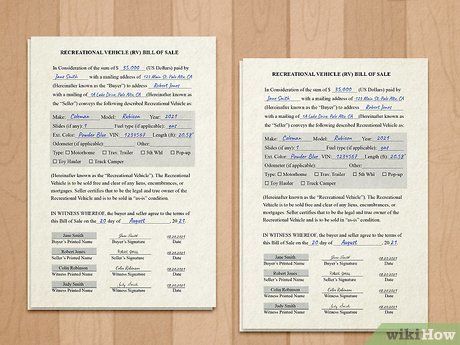 RECREATIONAL VEHICLE (RV) BILL OF SALE
In Consideration of the sum of $ 35,000 (US Dollars) paid by
Jane Smith with a mailing address of 123 Main St. Palo Alto, CA
(Hereinafter known as the "Buyer") to address Robert Jones
with a mailing of 1A Lake Drive, Palo Alto, CA (Hereinafter known as
the "Seller") conveys the following described Recreational Vehicle as:
Make: Coleman Model: Rubicon Year: 2021
Slides (if any): 1 Fuel type (if applicable): gas
Ext. Color: Powder Blue VIN: 1234567 Length (ft): 20.58
Odometer (if applicable): Other:
Type: Motorhome Trav. Trailer 5th Whl Pop-up
Toy Hauler Truck Camper
(Hereinafter known as the "Recreational Vehicle"). The Recreational
Vehicle is to be sold free and clear of any liens, encumbrances, or
mortgages. Seller certifies that to be the legal and true owner of the
Recreational Vehicle and is to be sold in "as-is" condition.
IN WITNESS WHEREOF, the buyer and seller agree to the terms of
this Bill of Sale on the 20 day of August , 2021.
Jane Smith Jane Smith
Buyer's Printed Name Buyer's Signature Date
Robert Jones Robert Jones
Seller's Printed Name Seller's Signature Date
Colin Robinson Colin Robinson
Witness Printed Name Witness Signature Date
Judy Smith Judy Smith
Witness Printed Name Witness Signature Date
RECREATIONAL VEHICLE (RV) BILL OF SALE
In Consideration of the sum of $ 35,000 (US Dollars) paid by
Jane Smith with a mailing address of 123 Main St. Palo Alto, CA
(Hereinafter known as the "Buyer") to address Robert Jones
with a mailing of 1A Lake Drive, Palo Alto, CA (Hereinafter known as
the "Seller") conveys the following described Recreational Vehicle as:
Make: Coleman Model: Rubicon Year: 2021
Slides (if any): 1 Fuel type (if applicable): gas
Ext. Color: Powder Blue VIN: 1234567 Length (ft): 20.58
Odometer (if applicable): Other:
Type: Motorhome Trav. Trailer 5th Whl Pop-up
Toy Hauler Truck Camper
(Hereinafter known as the "Recreational Vehicle"). The Recreational
Vehicle is to be sold free and clear of any liens, encumbrances, or
mortgages. Seller certifies that to be the legal and true owner of the
Recreational Vehicle and is to be sold in "as-is" condition.
IN WITNESS WHEREOF, the buyer and seller agree to the terms of
this Bill of Sale on the 20 day of August , 2021.
Jane Smith Jane Smith
Buyer's Printed Name Buyer's Signature Date
Robert Jones Robert Jones
Seller's Printed Name Seller's Signature Date
Colin Robinson Colin Robinson
Witness Printed Name Witness Signature Date
Judy Smith Judy Smith
Witness Printed Name Witness Signature Date
wikiHow